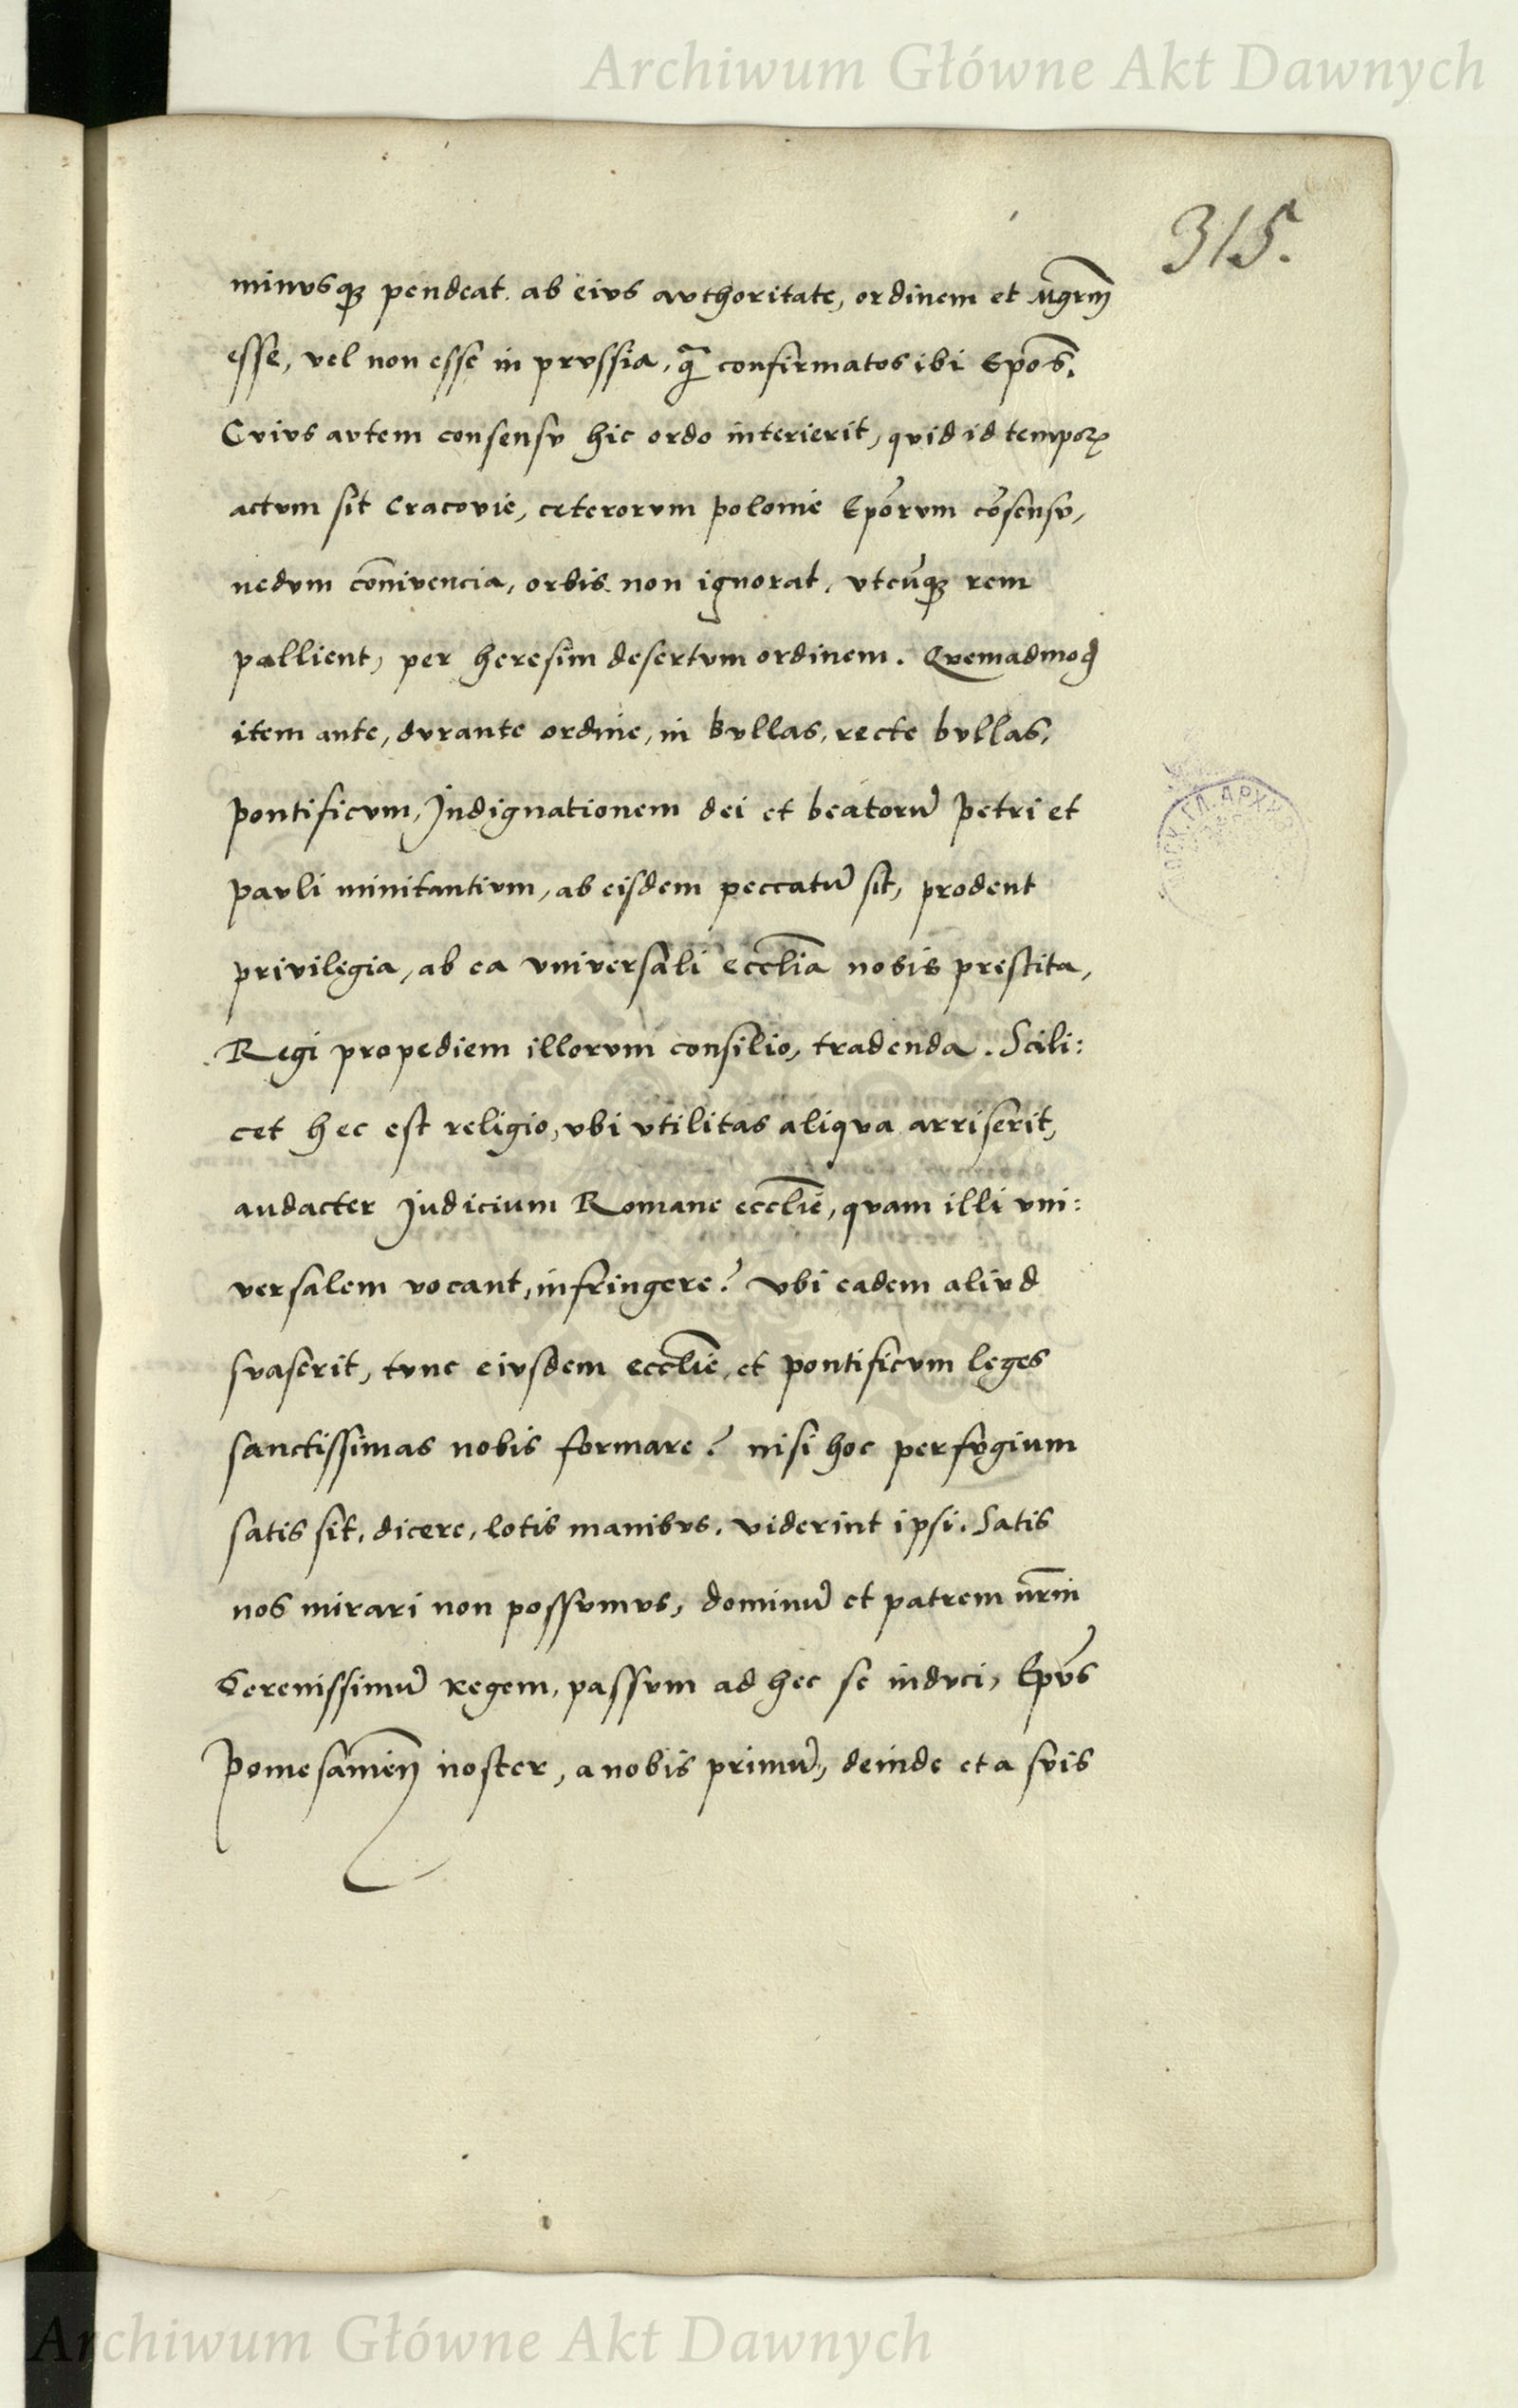 Archiwum Główne Akt Dawnych
315.
minusq̃ꝫ pendeat. ab eius authoritate, ordinem et Mg̃rm̃
esse, vel non esse in prussia, q̃ȝ confirmatos ibi Ep̃os.
Cuius autem consensu hic ordo interierit, quid id tempor̃
actum sit Cracovie, ceterorum polonie Ep̃orum cõsensu,
nedum cõnivencia, orbis non ignorat. utcũqꝫ rem
pallient, per heresim desertum ordinem. Quemadmod̃
item ante, durante ordine, in bullas, recte bullas,
pontificum, Indignationem dei et beatorũ petri et
pauli minitantium, ab eisdem peccatũ sit, prodent
privilegia, ab ea universali ecclĩa nobis prestita,
Regi propediem illorum consilio, tradenda. Scili:
cet hec est religio, ubi utilitas aliqua arriserit,
audacter Judicium Romane ecclĩe, quam illi uni:
versalem vocant, infringere? ubi eadem aliud
suaserit, tunc eiusdem ecclĩe, et pontificum leges
sanctissimas nobis formare? nisi hoc perfugium
satis sit, dicere, lotis manibus. viderint ipsi. Satis
nos mirari non possumus, dominũ et patrem nr̃m
Serenissimũ Regem, passum ad hec se induci, Ep̃us
Pomesanieñ noster, a nobis primũ, deinde et a suis
МОСК. ГЛ. АРХИВ
Archiwum Główne Akt Dawnych